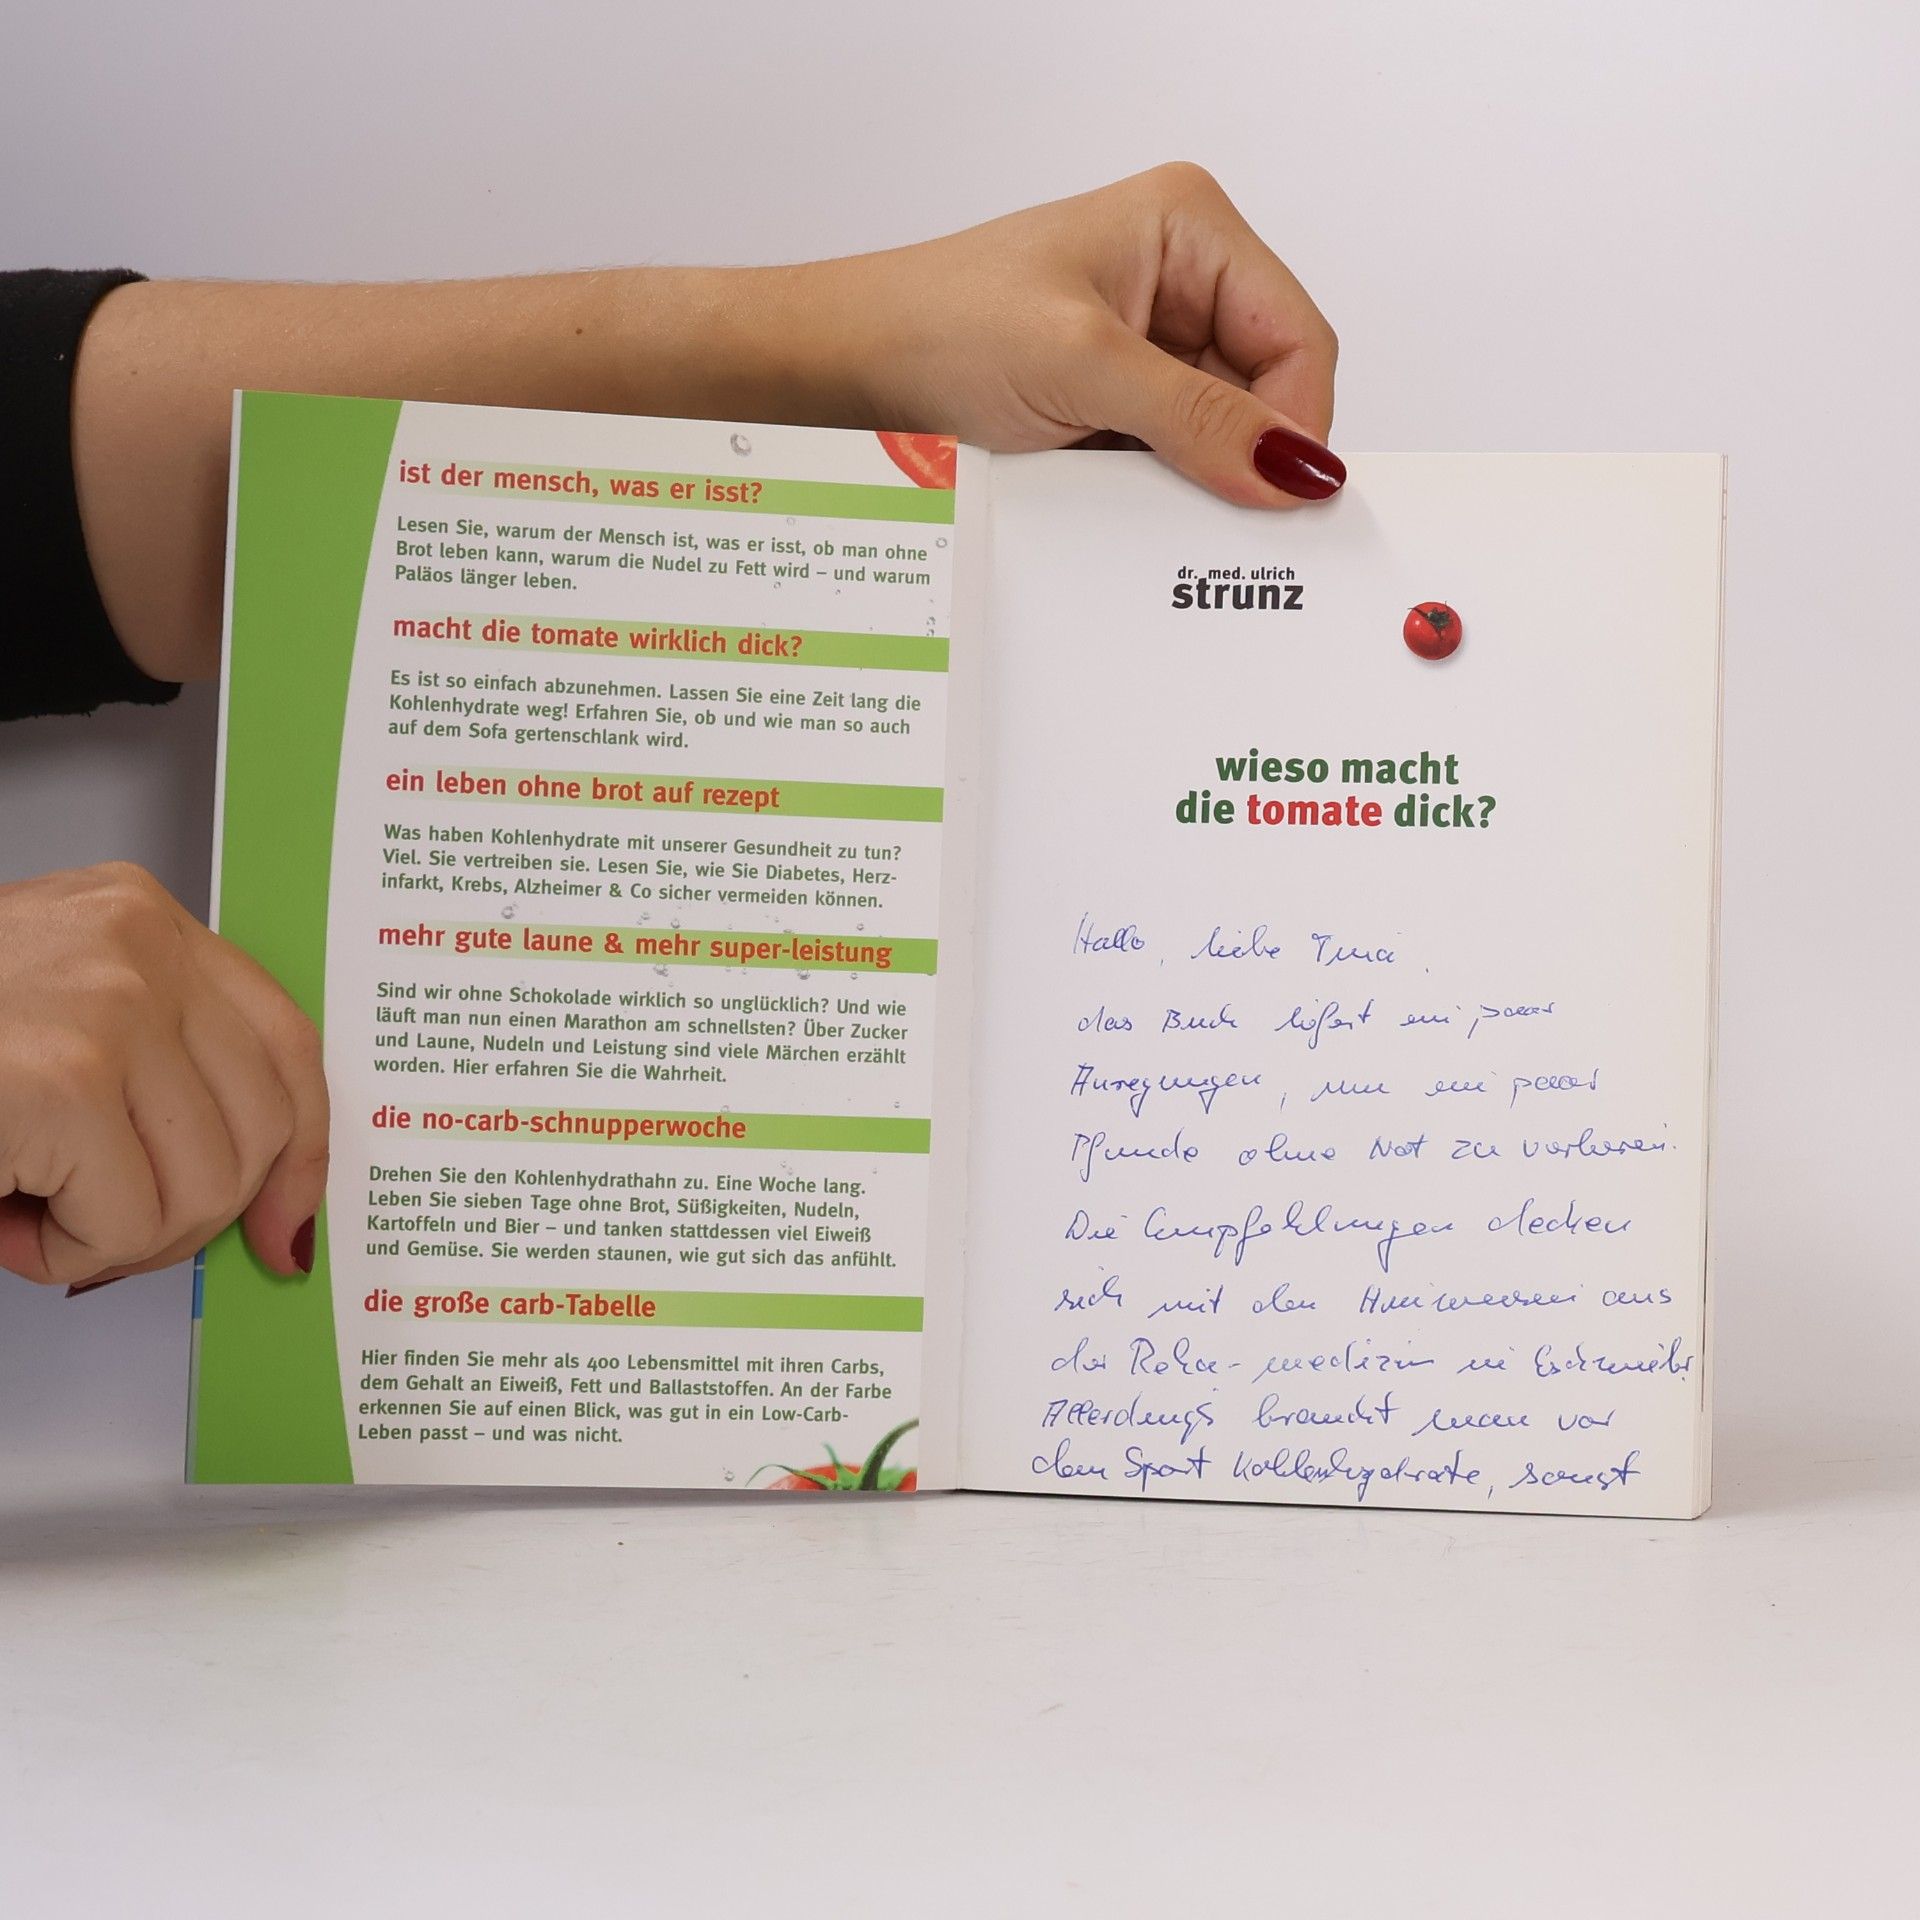 ist der mensch, was er isst?
Lesen Sie, warum der Mensch ist, was er isst, ob man ohne
Brot leben kann, warum die Nudel zu Fett wird – und warum
Paläos länger leben.
macht die tomate wirklich dick?
Es ist so einfach abzunehmen. Lassen Sie eine Zeit lang die
Kohlenhydrate weg! Erfahren Sie, ob und wie man so auch
auf dem Sofa gertenschlank wird.
ein leben ohne brot auf rezept
Was haben Kohlenhydrate mit unserer Gesundheit zu tun?
Viel. Sie vertreiben sie. Lesen Sie, wie Sie Diabetes, Herz-
infarkt, Krebs, Alzheimer & Co sicher vermeiden können.
mehr gute laune & mehr super-leistung
Sind wir ohne Schokolade wirklich so unglücklich? Und wie
läuft man nun einen Marathon am schnellsten? Über Zucker
und Laune, Nudeln und Leistung sind viele Märchen erzählt
worden. Hier erfahren Sie die Wahrheit.
die no-carb-schnupperwoche
Drehen Sie den Kohlenhydrathahn zu. Eine Woche lang.
Leben Sie sieben Tage ohne Brot, Süßigkeiten, Nudeln,
Kartoffeln und Bier – und tanken stattdessen viel Eiweiß
und Gemüse. Sie werden staunen, wie gut sich das anfühlt.
die große carb-Tabelle
Hier finden Sie mehr als 400 Lebensmittel mit ihren Carbs,
dem Gehalt an Eiweiß, Fett und Ballaststoffen. An der Farbe
erkennen Sie auf einen Blick, was gut in ein Low-Carb-
Leben passt – und was nicht.
dr. med. ulrich
strunz
wieso macht
die tomate dick?
Hallo, liebe
das Buch liefert ein paar
Anregungen, um ein paar
Pfunde ohne Not zu verlieren.
Die Empfehlungen decken
sich mit den Hinweisen aus
der Reha-medizin in
Allerdings braucht man vor
dem Sport Kohlenhydrate, sonst